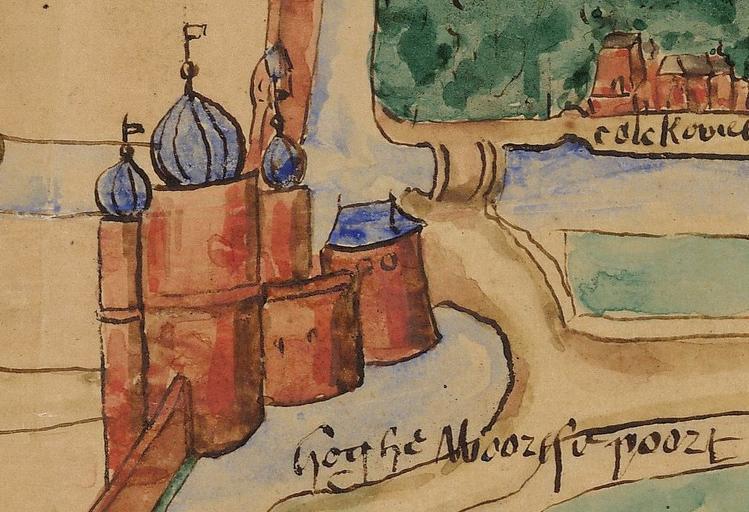 colckovie
hoghe Moorse poort